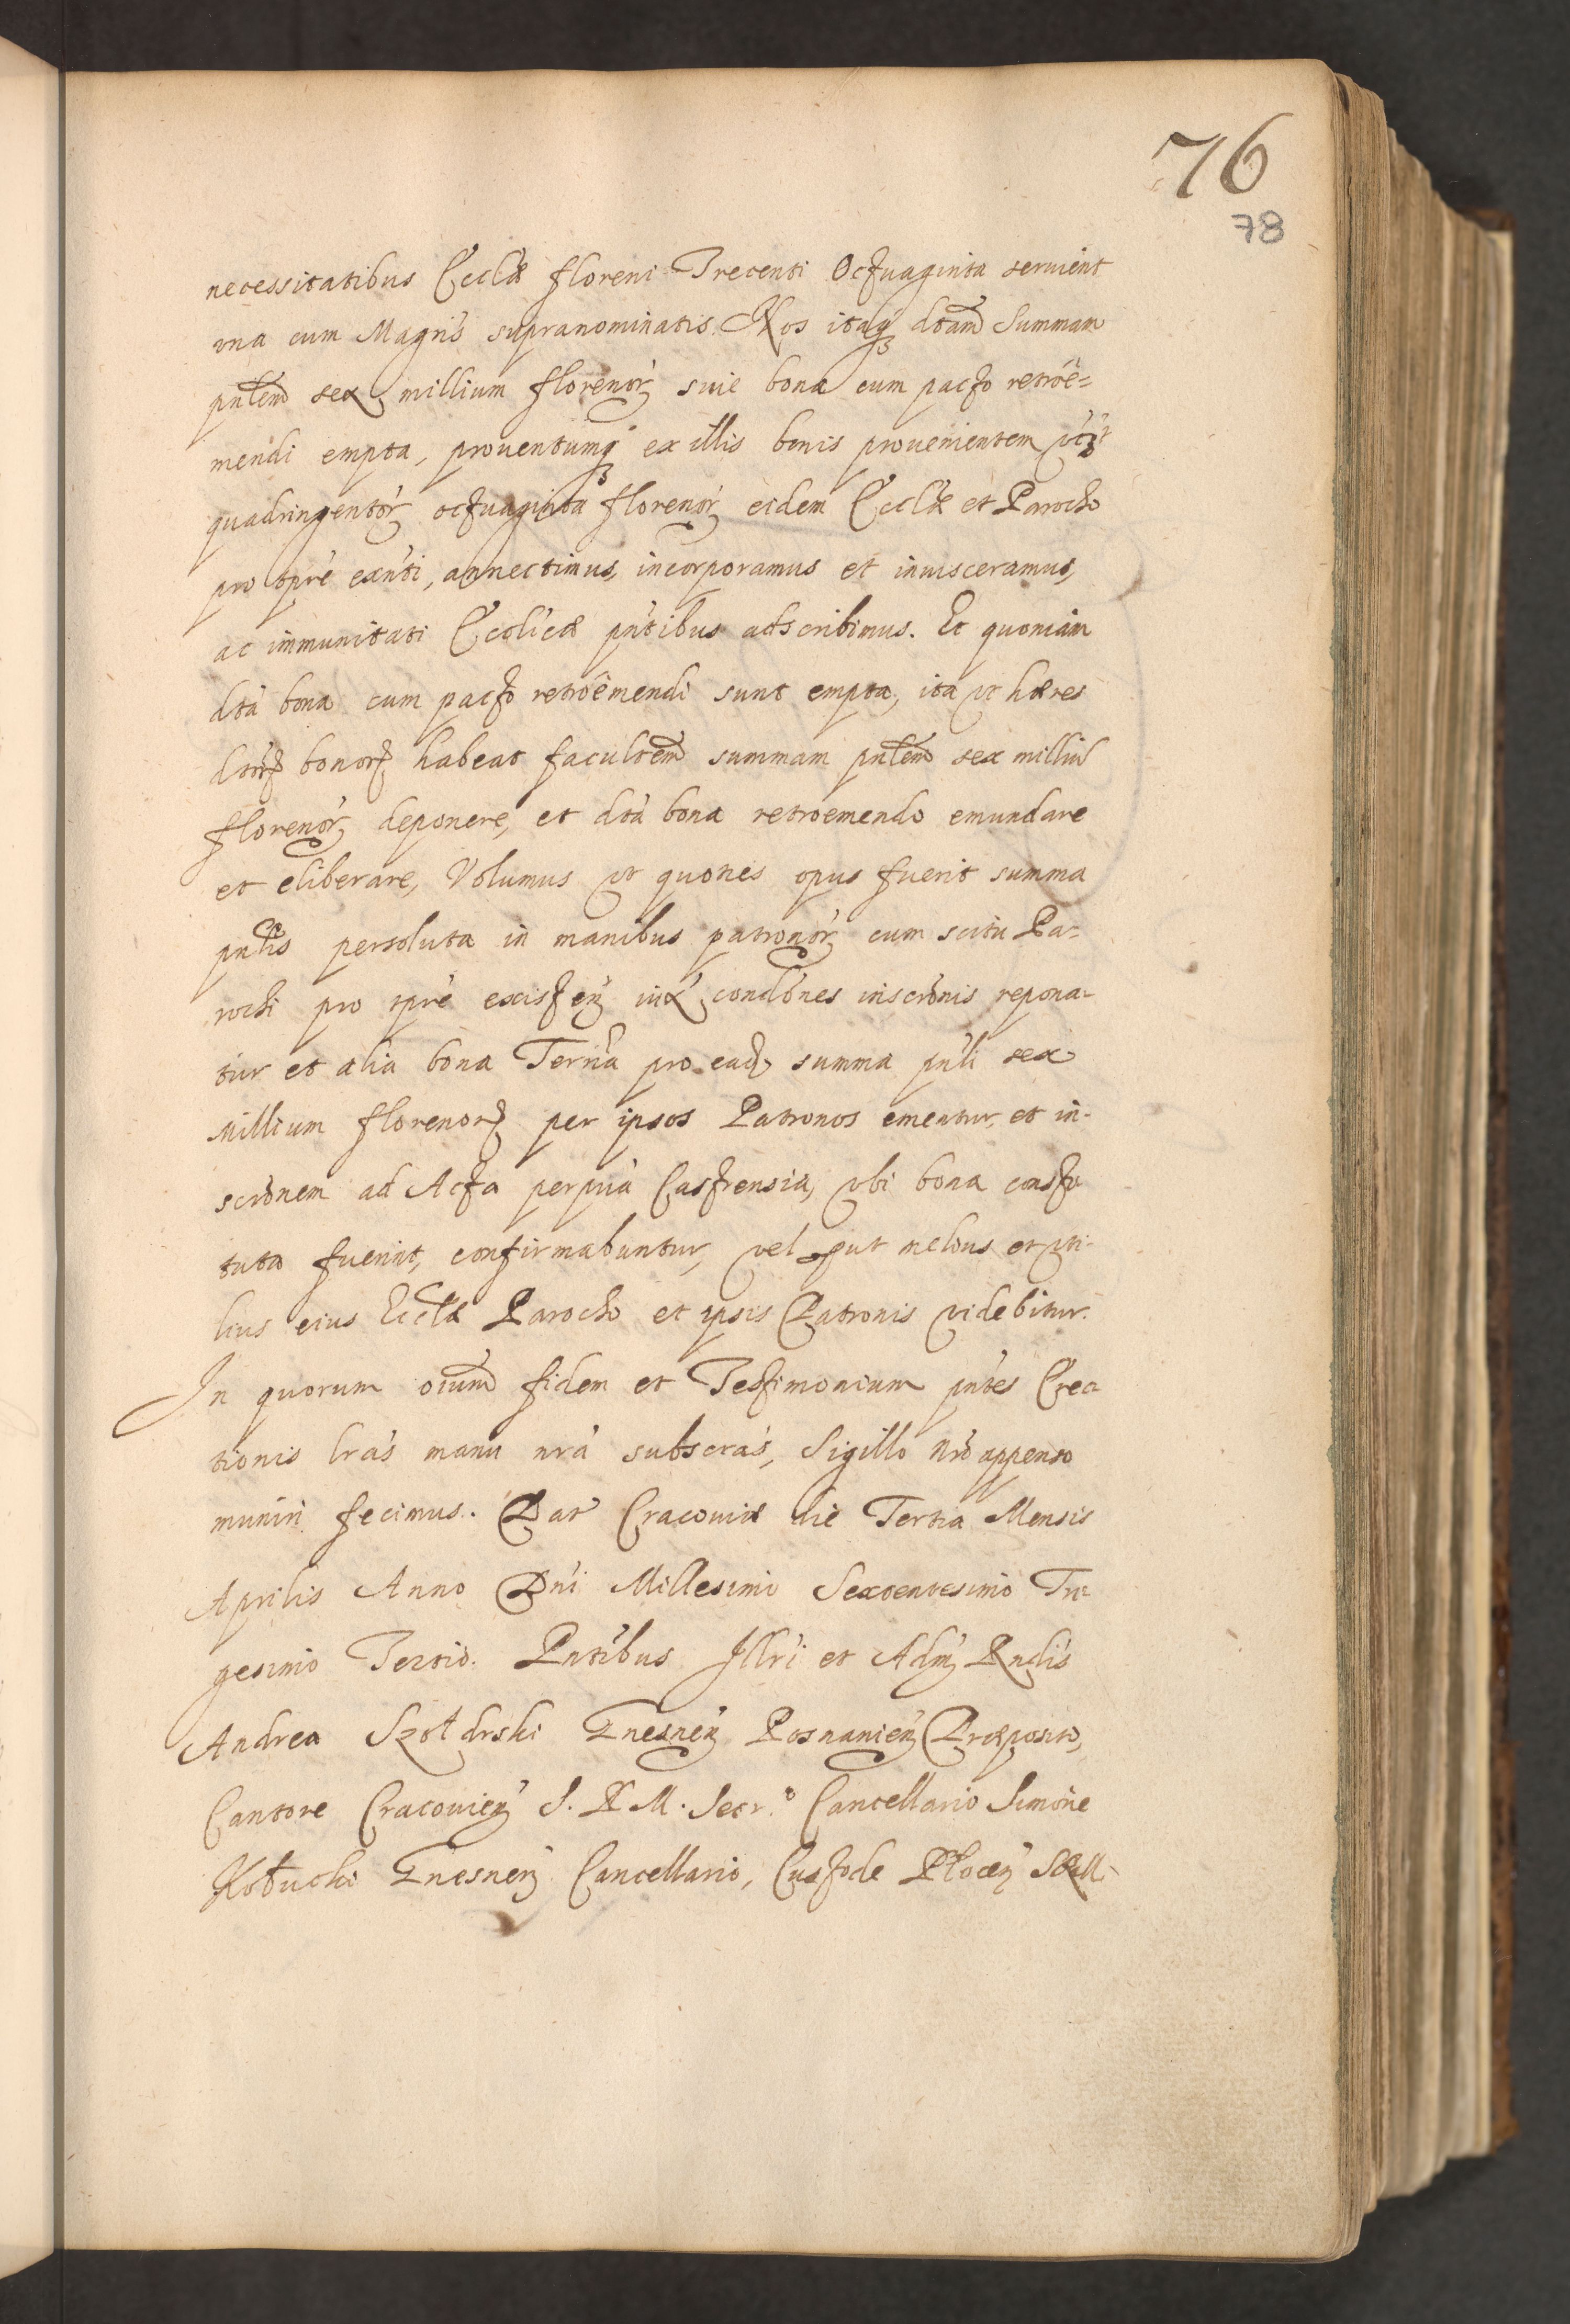 76
78
necessitatibus Ecclæ floreni Trecenti Octuaginta seruient
vna cum Magris supranominatis. Nos itaq₃ dtam Summam
pnlem sex millium florenor. siue bona cum pacto retroe=
mendi empta, prouentumq₃ ex illis bonis prouenientem
quadringentor. octuaginta florenor. eidem Ecclæ et Parocho
pro tpre exnti, annectimus, incorporamus et inuisceramus,
ac immunitati Ecclicæ pntibus adscribimus. Et quoniam
dta bona cum pacto retroemendi sunt empta, ita vt hæres
dtor. bonor. habeat facultem summam pnlem sex milliu
florenor. deponere, et dta bona retroemendo emundare
et eliberare, Volumus vt quoties opus fuerit summa
pnlis persoluta in manibus patronor. cum scitu Pa=
rochi pro tpre existen. iux condones inscronis repona-
tur et alia bona Terrria pro ead. summa pnli sex
Millium florenor. per ipsos Patronos ementur, et in-
scronem ad Acta perpua Castrensia, vbi bona consti
tuta fuerint, confirmabuntur, vel put melius et vti-
lius eius Ecclæ Parocho et ipsis Patronis videbitur.
In quorum oium fidem et Testimonium pntes Erec
tionis lras manu nra subscras, Sigillo nro appenso
muniri fecimus. Dat Cracouiæ die Tertia Mensis
Aprilis Anno Dni Millesimo Sexcentesimo Tri-
gesimo Tertio. Pntibus Illri et Adm Rndis
Andrea Szołdrski Gnesnen. Posnanien. Præposito,
Cantore Cracouien. S. R M. Secr.º Cancellario Simone
Kołucki Gnesnen. Cancellario, Custode Płocen.